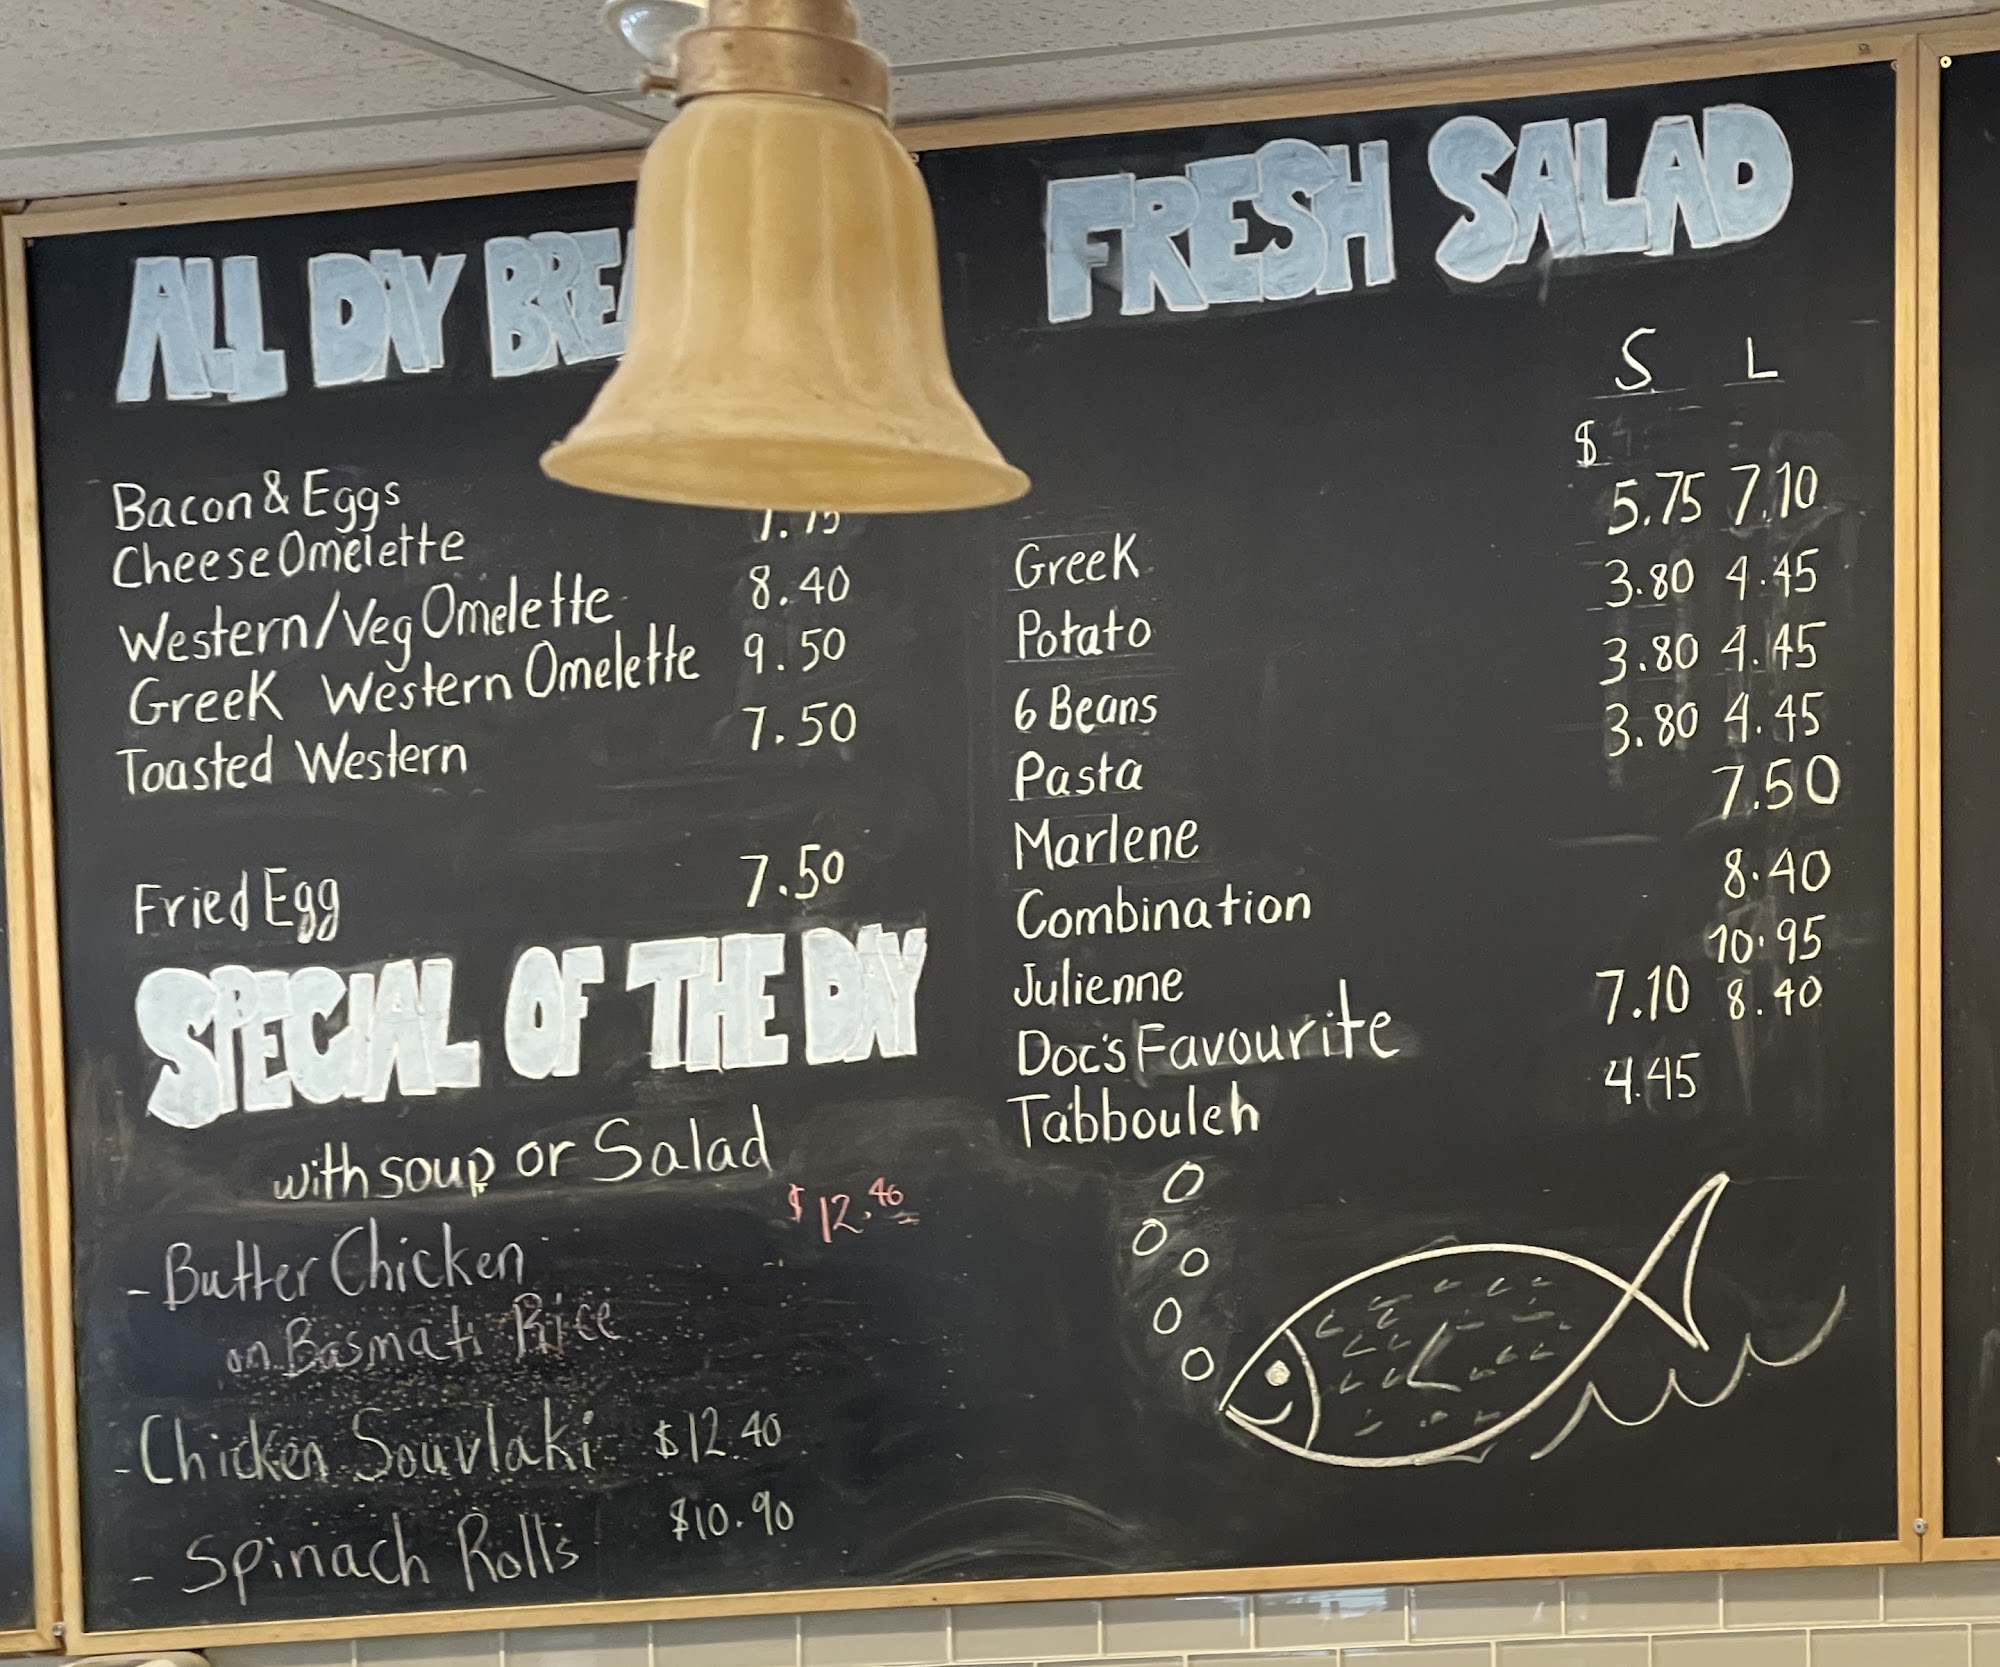 ALL DAY BREA
Bacon & Eggs
Cheese Omelette 7.75
Western/Veg Omelette 8.40
Greek Western Omelette 9.50
Toasted Western 7.50
Fried Egg 7.50
SPECIAL OF THE DAY
with soup or Salad
$12.40
- Butter Chicken
on Basmati Rice
- Chicken Souvlaki $12.40
- Spinach Rolls $10.90
FRESH SALAD
S L
$
Greek 5.75 7.10
Potato 3.80 4.45
6 Beans 3.80 4.45
Pasta 3.80 4.45
Marlene 7.50
Combination 8.40
Julienne 10.95
Doc's Favourite 7.10 8.40
Tabbouleh 4.45